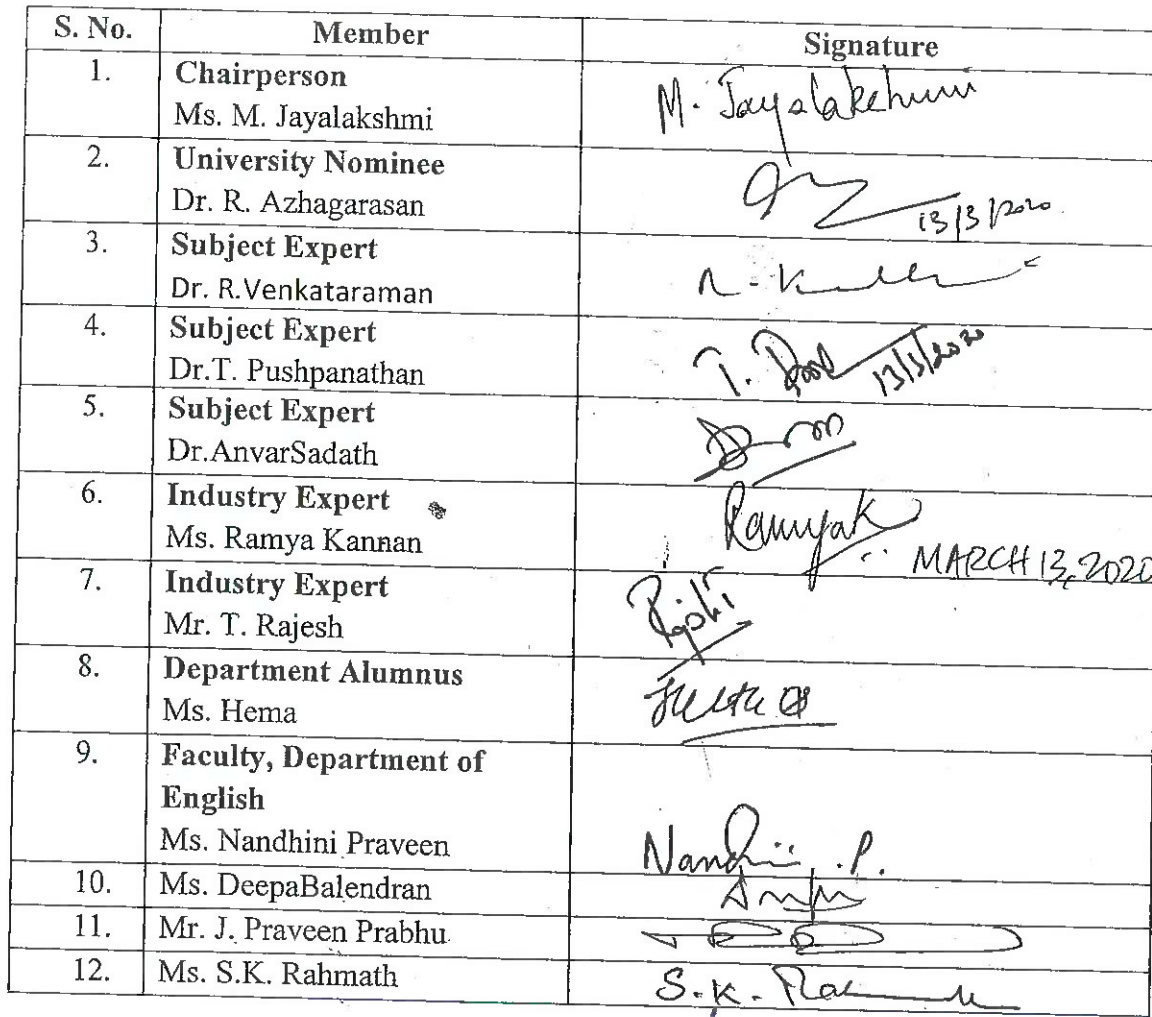 S. No. Member Signature
1. Chairperson
Ms. M. Jayalakshmi M. Jayalakshmi
2. University Nominee
Dr. R. Azhagarasan 13/3/2020
3. Subject Expert
Dr. R.Venkataraman
4. Subject Expert
Dr.T. Pushpanathan T. 13/3/2020
5. Subject Expert
Dr.AnvarSadath
6. Industry Expert
Ms. Ramya Kannan RamyaK MARCH 13, 2020
7. Industry Expert
Mr. T. Rajesh
8. Department Alumnus
Ms. Hema
9. Faculty, Department of
English
Ms. Nandhini Praveen Nandhini .P.
10. Ms. DeepaBalendran
11. Mr. J. Praveen Prabhu
12. Ms. S.K. Rahmath S.K. Rahmath